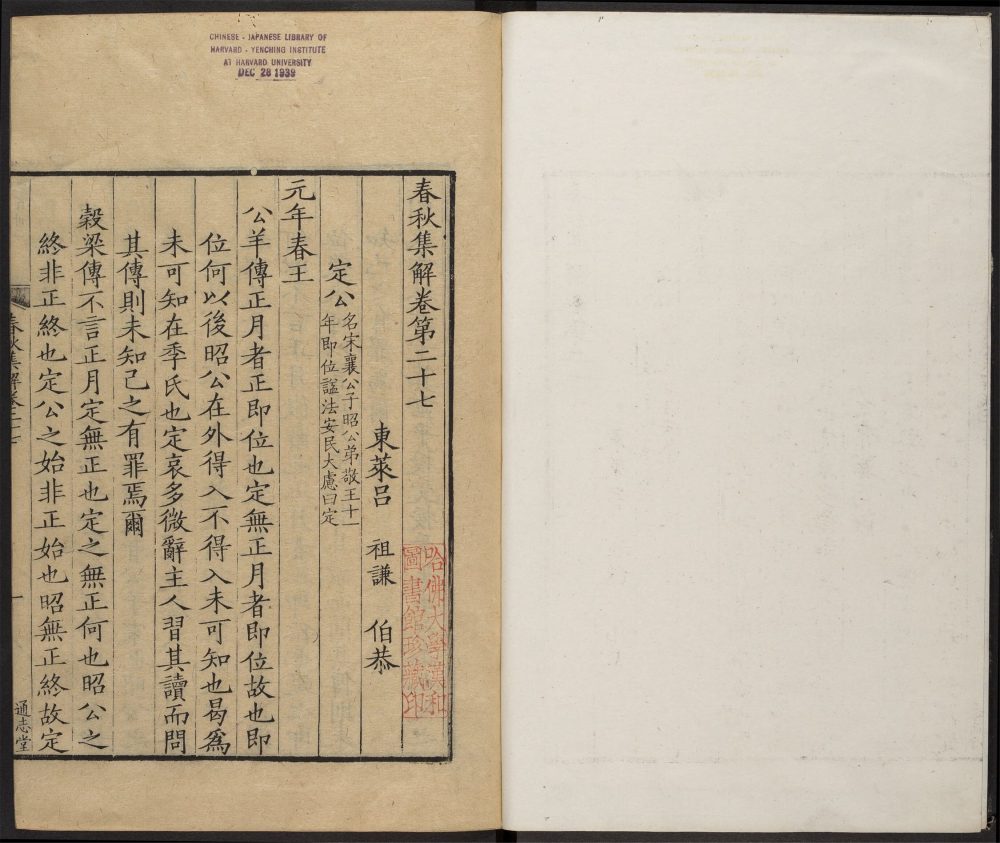 CHINESE - JAPANESE LIBRARY OF
HARVARD - YENCHING INSTITUTE
AT HARVARD UNIVERSITY
DEC 28 1939
春秋集解卷第二十七
東萊呂 祖謙 伯恭
哈佛大學漢和
圖書館珍藏印
定公名宋襄公子昭公弟敬王十一
年即位諡法安民大慮曰定
元年春王
公羊傳正月者正即位也定無正月者即位故也即
位何以後昭公在外得入不得入未可知也曷為
未可知在季氏也定哀多微辭主人習其讀而問
其傳則未知己之有罪焉爾
穀梁傳不言正月定無正也定之無正何也昭公之
終非正終也定公之始非正始也昭無正終故定
春秋集解卷二十七
一
通志堂